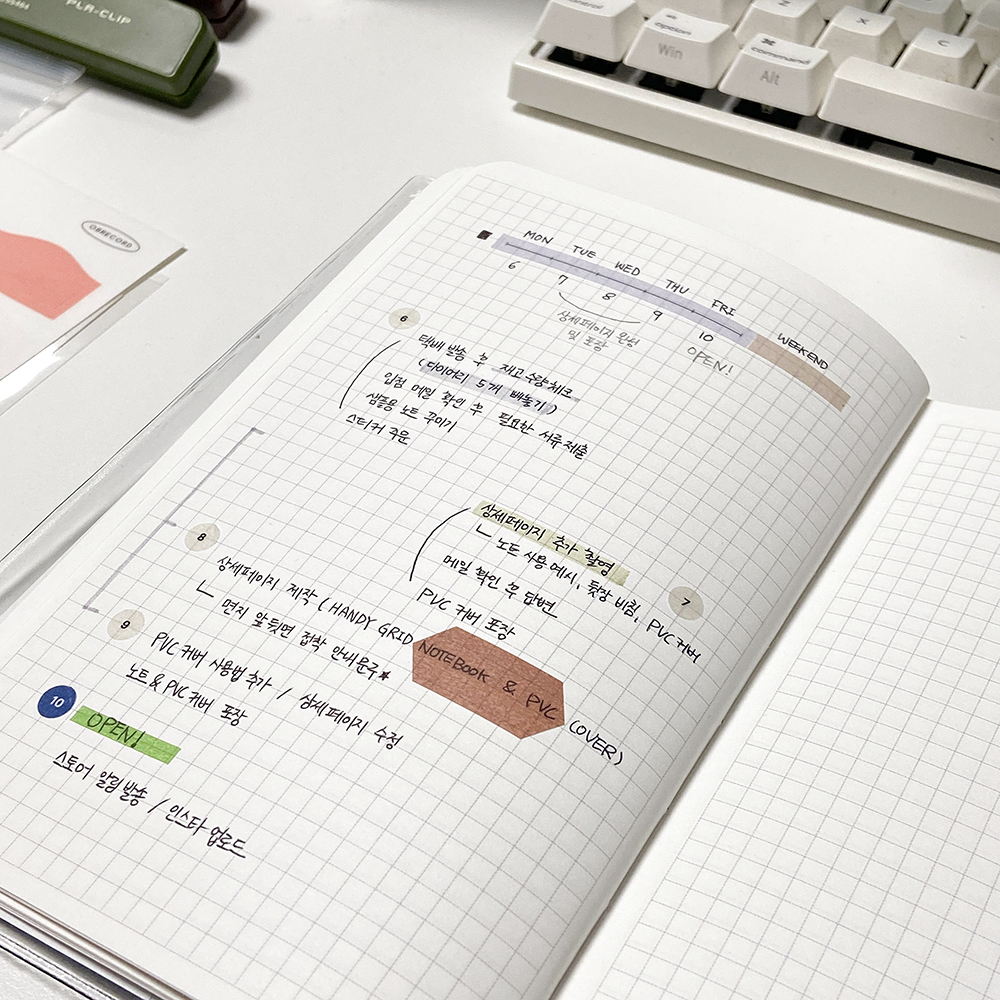 PLA-CLIP
option
Win
command
Alt
Z
X
C
OBRECORD
MON TUE WED THU FRI WEEKEND
6 7 8 9 10
상세페이지 완성
및 포장
OPEN!
6
택배 발송 후 재고수량체크
(다이어리 5개 빼놓기)
입점 메일 확인 후 필요한 서류제출
샘플용 노트 꾸미기
스티커 주문
7
상세페이지 추가 촬영
ㄴ 노트 사용예시, 뒷장 비침, PVC커버
메일 확인 후 답변
PVC 커버 포장
8
상세페이지 제작 (HANDY GRID NOTEBOOK & PVC COVER)
ㄴ 면지 앞뒷면 접착 안내문구★
9
PVC커버 사용법 추가 / 상세페이지 수정
노트&PVC커버 포장
10
OPEN!
스토어 알림발송 / 인스타업로드